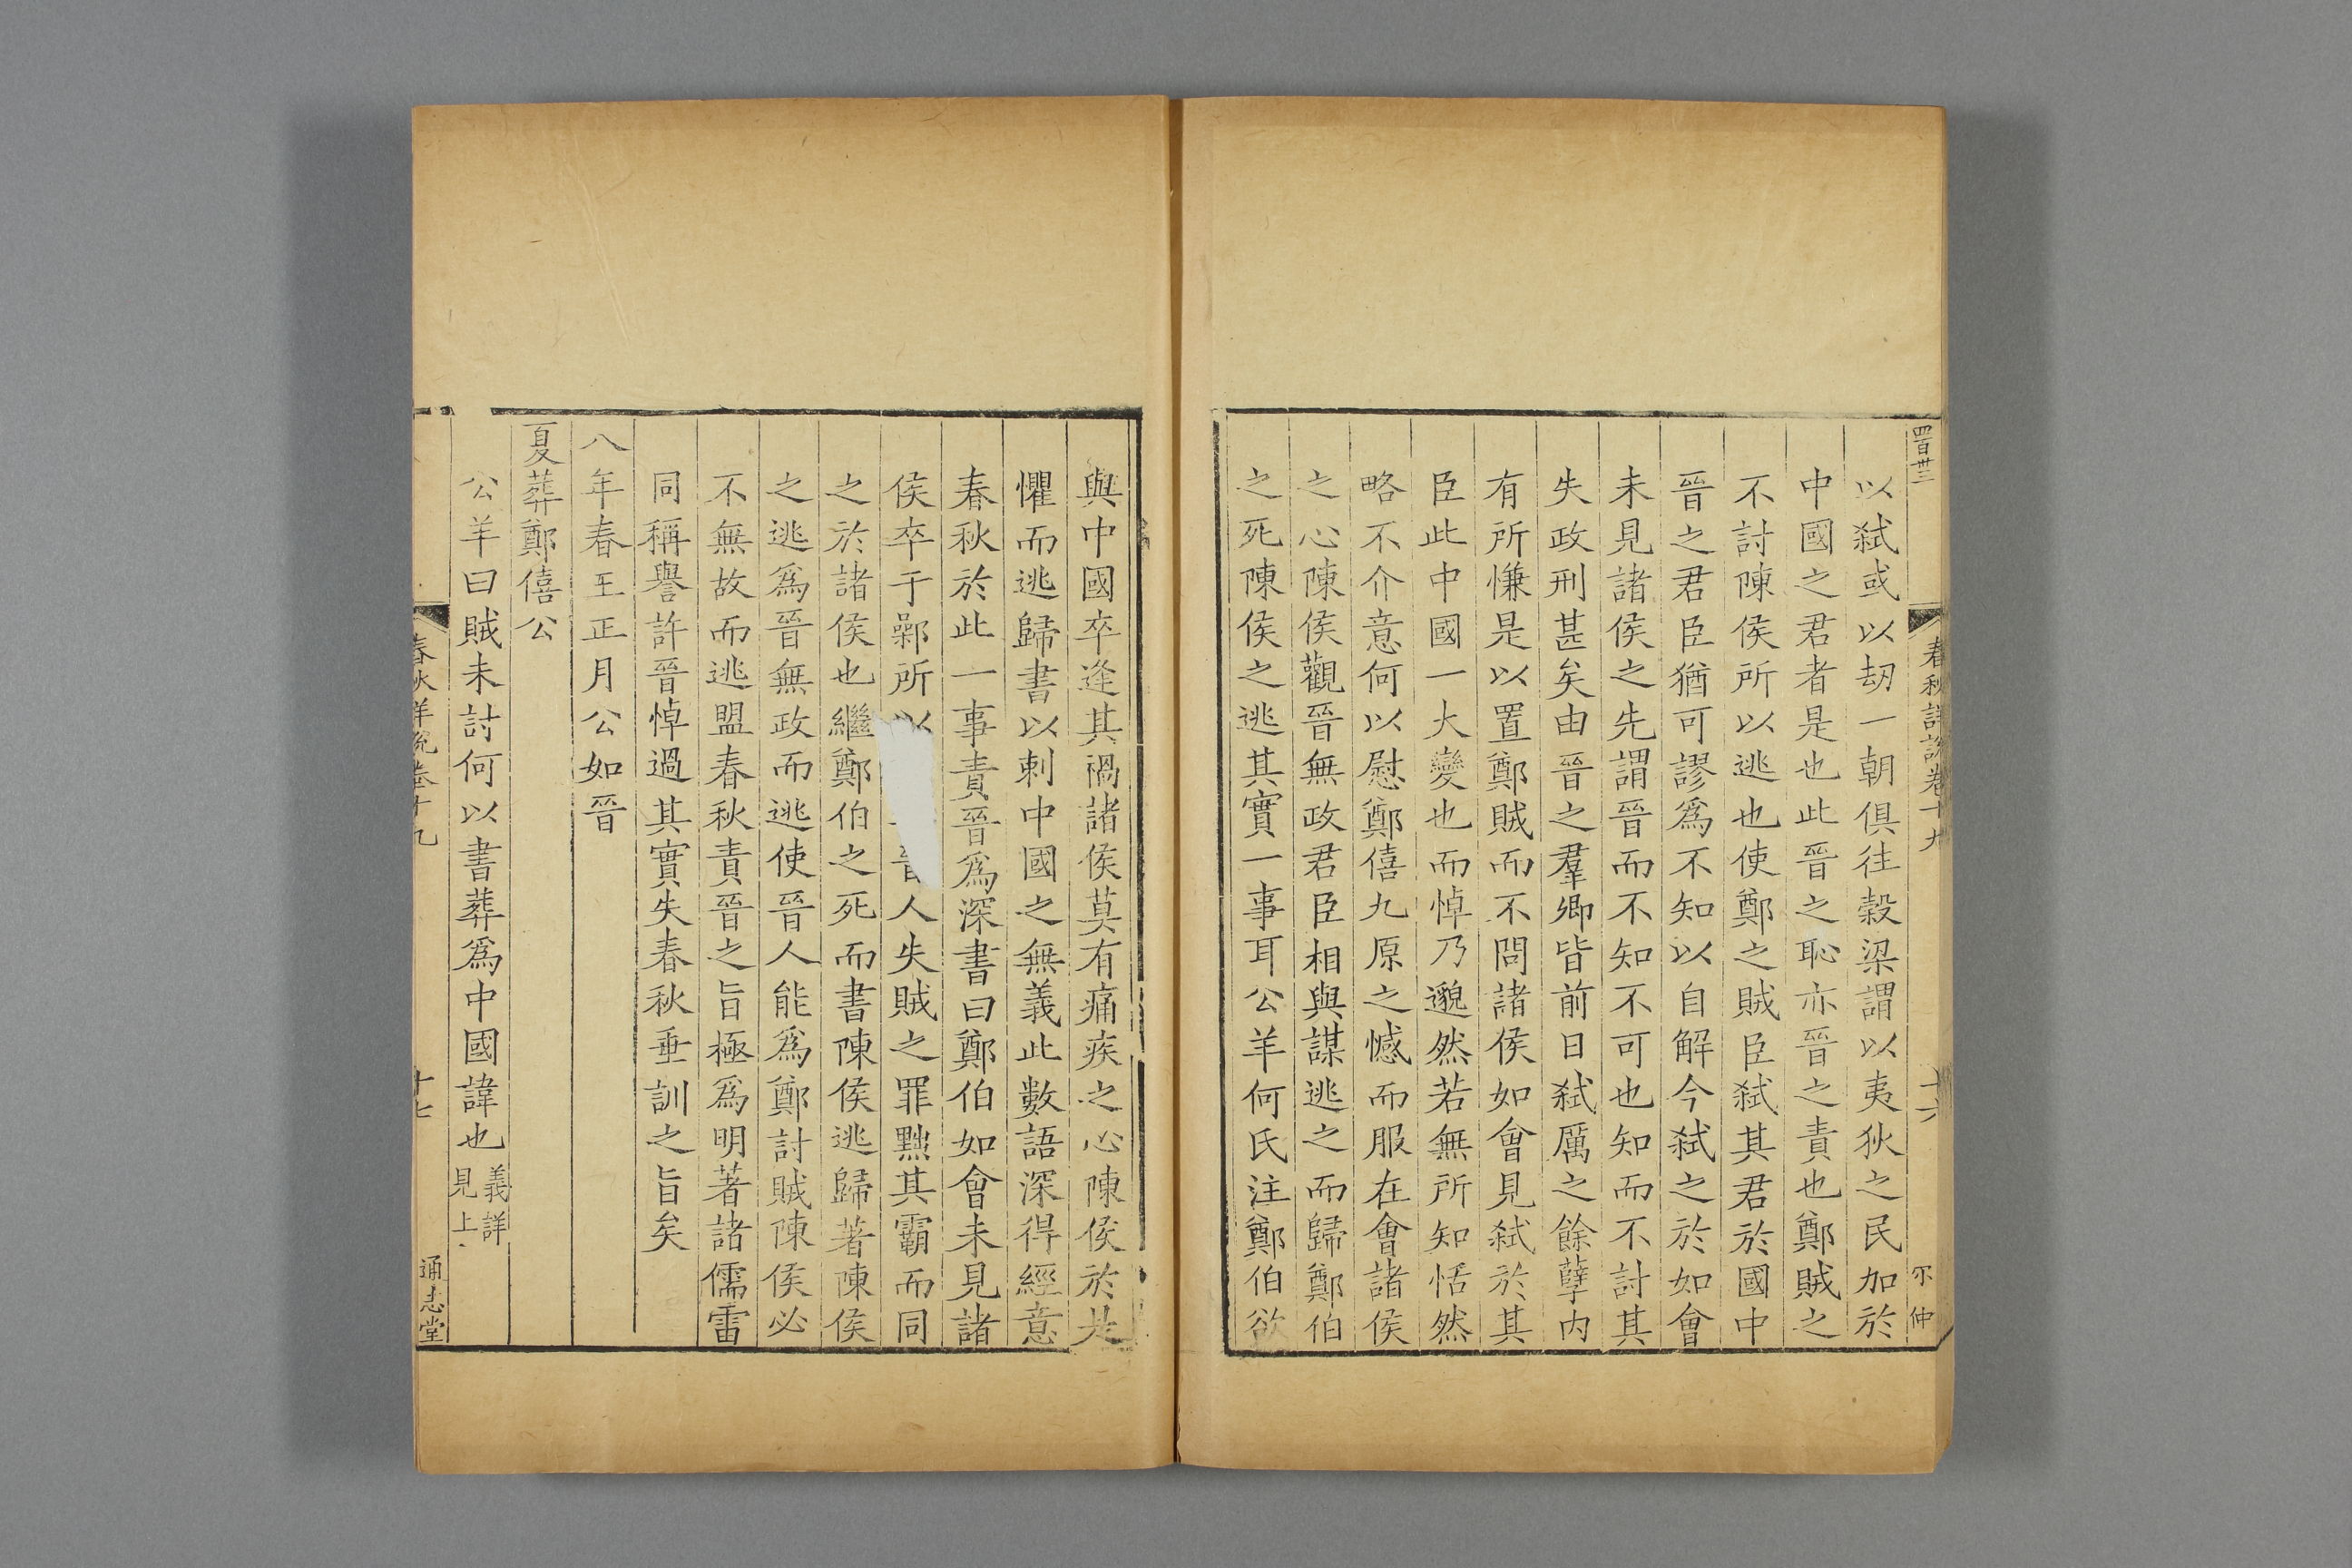 四百卅三
春秋詳說卷十九
十六
尒仲
以弑或以刼一朝俱往榖梁謂以夷狄之民加於
中國之君者是也此晉之恥亦晉之責也鄭賊之
不討陳侯所以逃也使鄭之賊臣弑其君於國中
晉之君臣猶可謬爲不知以自解今弑之於如會
未見諸侯之先謂晉而不知不可也知而不討其
失政刑甚矣由晉之羣卿皆前日弑厲之餘孽内
有所慊是以置鄭賊而不問諸侯如會見弑於其
臣此中國一大變也而悼乃邈然若無所知恬然
略不介意何以慰鄭僖九原之憾而服在會諸侯
之心陳侯觀晉無政君臣相與謀逃之而歸鄭伯
之死陳侯之逃其實一事耳公羊何氏注鄭伯欲
與中國卒逢其禍諸侯莫有痛疾之心陳侯於是
懼而逃歸書以刺中國之無義此數語深得經意
春秋於此一事責晉爲深書曰鄭伯如會未見諸
侯卒于鄵所以晉人失賊之罪黜其霸而同
之於諸侯也繼鄭伯之死而書陳侯逃歸著陳侯
之逃爲晉無政而逃使晉人能爲鄭討賊陳侯必
不無故而逃盟春秋責晉之旨極爲明著諸儒雷
同稱譽許晉悼過其實失春秋垂訓之旨矣
八年春王正月公如晉
夏葬鄭僖公
公羊曰賊未討何以書葬爲中國諱也義詳見上
春秋詳說卷十九
十七
通志堂